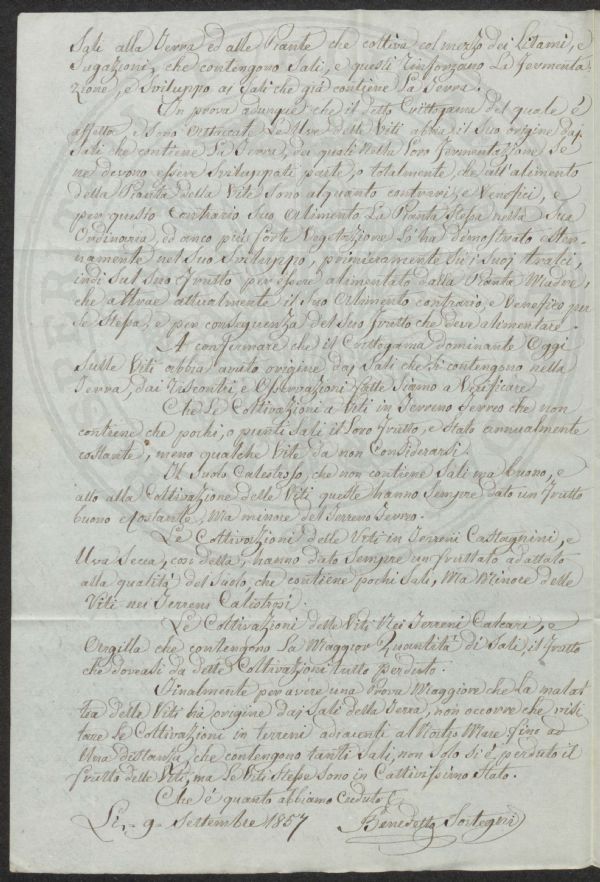 Sali alla Terra ed alle Piante che coltiva col mezzo dei Litami, e
Sugazioni, che contengono Sali, e questi rinforzano La Fermenta
zione, e Sviluppo ai Sali che già contiene La Terra.
In prova adunque che il detto Crittogama del quale è
affetto, e sono attaccate Le Uve delle Viti abbia il Suo origine daj
Sali che contiene La Terra, dai quali nella Loro fermentazione Se
ne devono essere Sviluppati parte, o totalmente, che all'alimento
della Pianta della Vite sono alquanto contrari, e Venefici, e
per questo Contrario Suo Alimento La Pianta Stessa nella Sua
Ordinaria, ed anco più forte Vegetazione Lo ha dimostrato ester-
namente nel Suo Sviluppo, primieramente Su i Suoj tralci,
indi Sul Suo frutto per essere alimentato dalla Pianta Madre,
che attrae attualmente il Suo Alimento contrario, e Venefico per
Se Stessa, e per conseguenza del Suo frutto che deve alimentare.
A confermare che il Crittogama dominante Oggi
Sulle Viti abbia avuto origine daj Sali che Si contengono nella
Terra, dai Riscontri, e Osservazioni fatte Siamo a Verificare
Che Le Coltivazioni a Viti in Terreno ferreo che non
contiene che pochi, o punti Sali il Loro frutto, e Stato annualmente
costante, meno qualche Vite da non Considerarsi.
Il Suolo Calestroso, che non contiene Sali ma buono, e
atto alla Coltivazione delle Viti queste hanno Sempre dato un frutto
buono e Costante, Ma minore del Terreno ferreo.
Le Coltivazioni delle Viti in Terreni Castagnini, e
Uva Secca, così detta, hanno dato Sempre un fruttato adattato
alla qualità del Suolo, che contiene pochi Sali, Ma Minore delle
Viti nei Terreni Calestrosi.
Le Coltivazioni delle Viti Nei Terreni Calcari, e
Argilla che contengono La Maggior Quantità di Sali, il frutto
che doveasi da dette Coltivazioni tutto perduto.
Finalmente per avere una Prova Maggiore che La malat
tia delle Viti bia origine daj Sali della Terra, non occorre che visi
tare Le Coltivazioni in terreni adiacenti al Nostro Mare fino ad
Una distanza, che contengono tanti Sali, non Solo Si è perduto il
frutto delle Viti, ma Le Viti Stesse Sono in Cattivissimo Stato.
Che è quanto abbiamo Creduto
Li 9 Settembre 1857 Benedetto